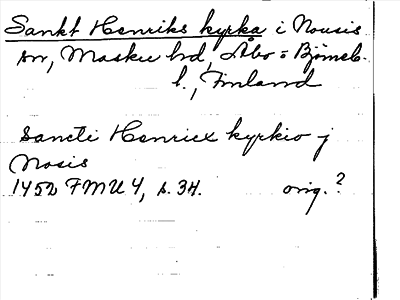 Sankt Henriks kyrka i Nousis
sn, Masku hd, Åbo = Björneb.
l., Finland
Sancti Henricx kyrkio j
Nosis
1452 FMU 4, s. 34. orig.?